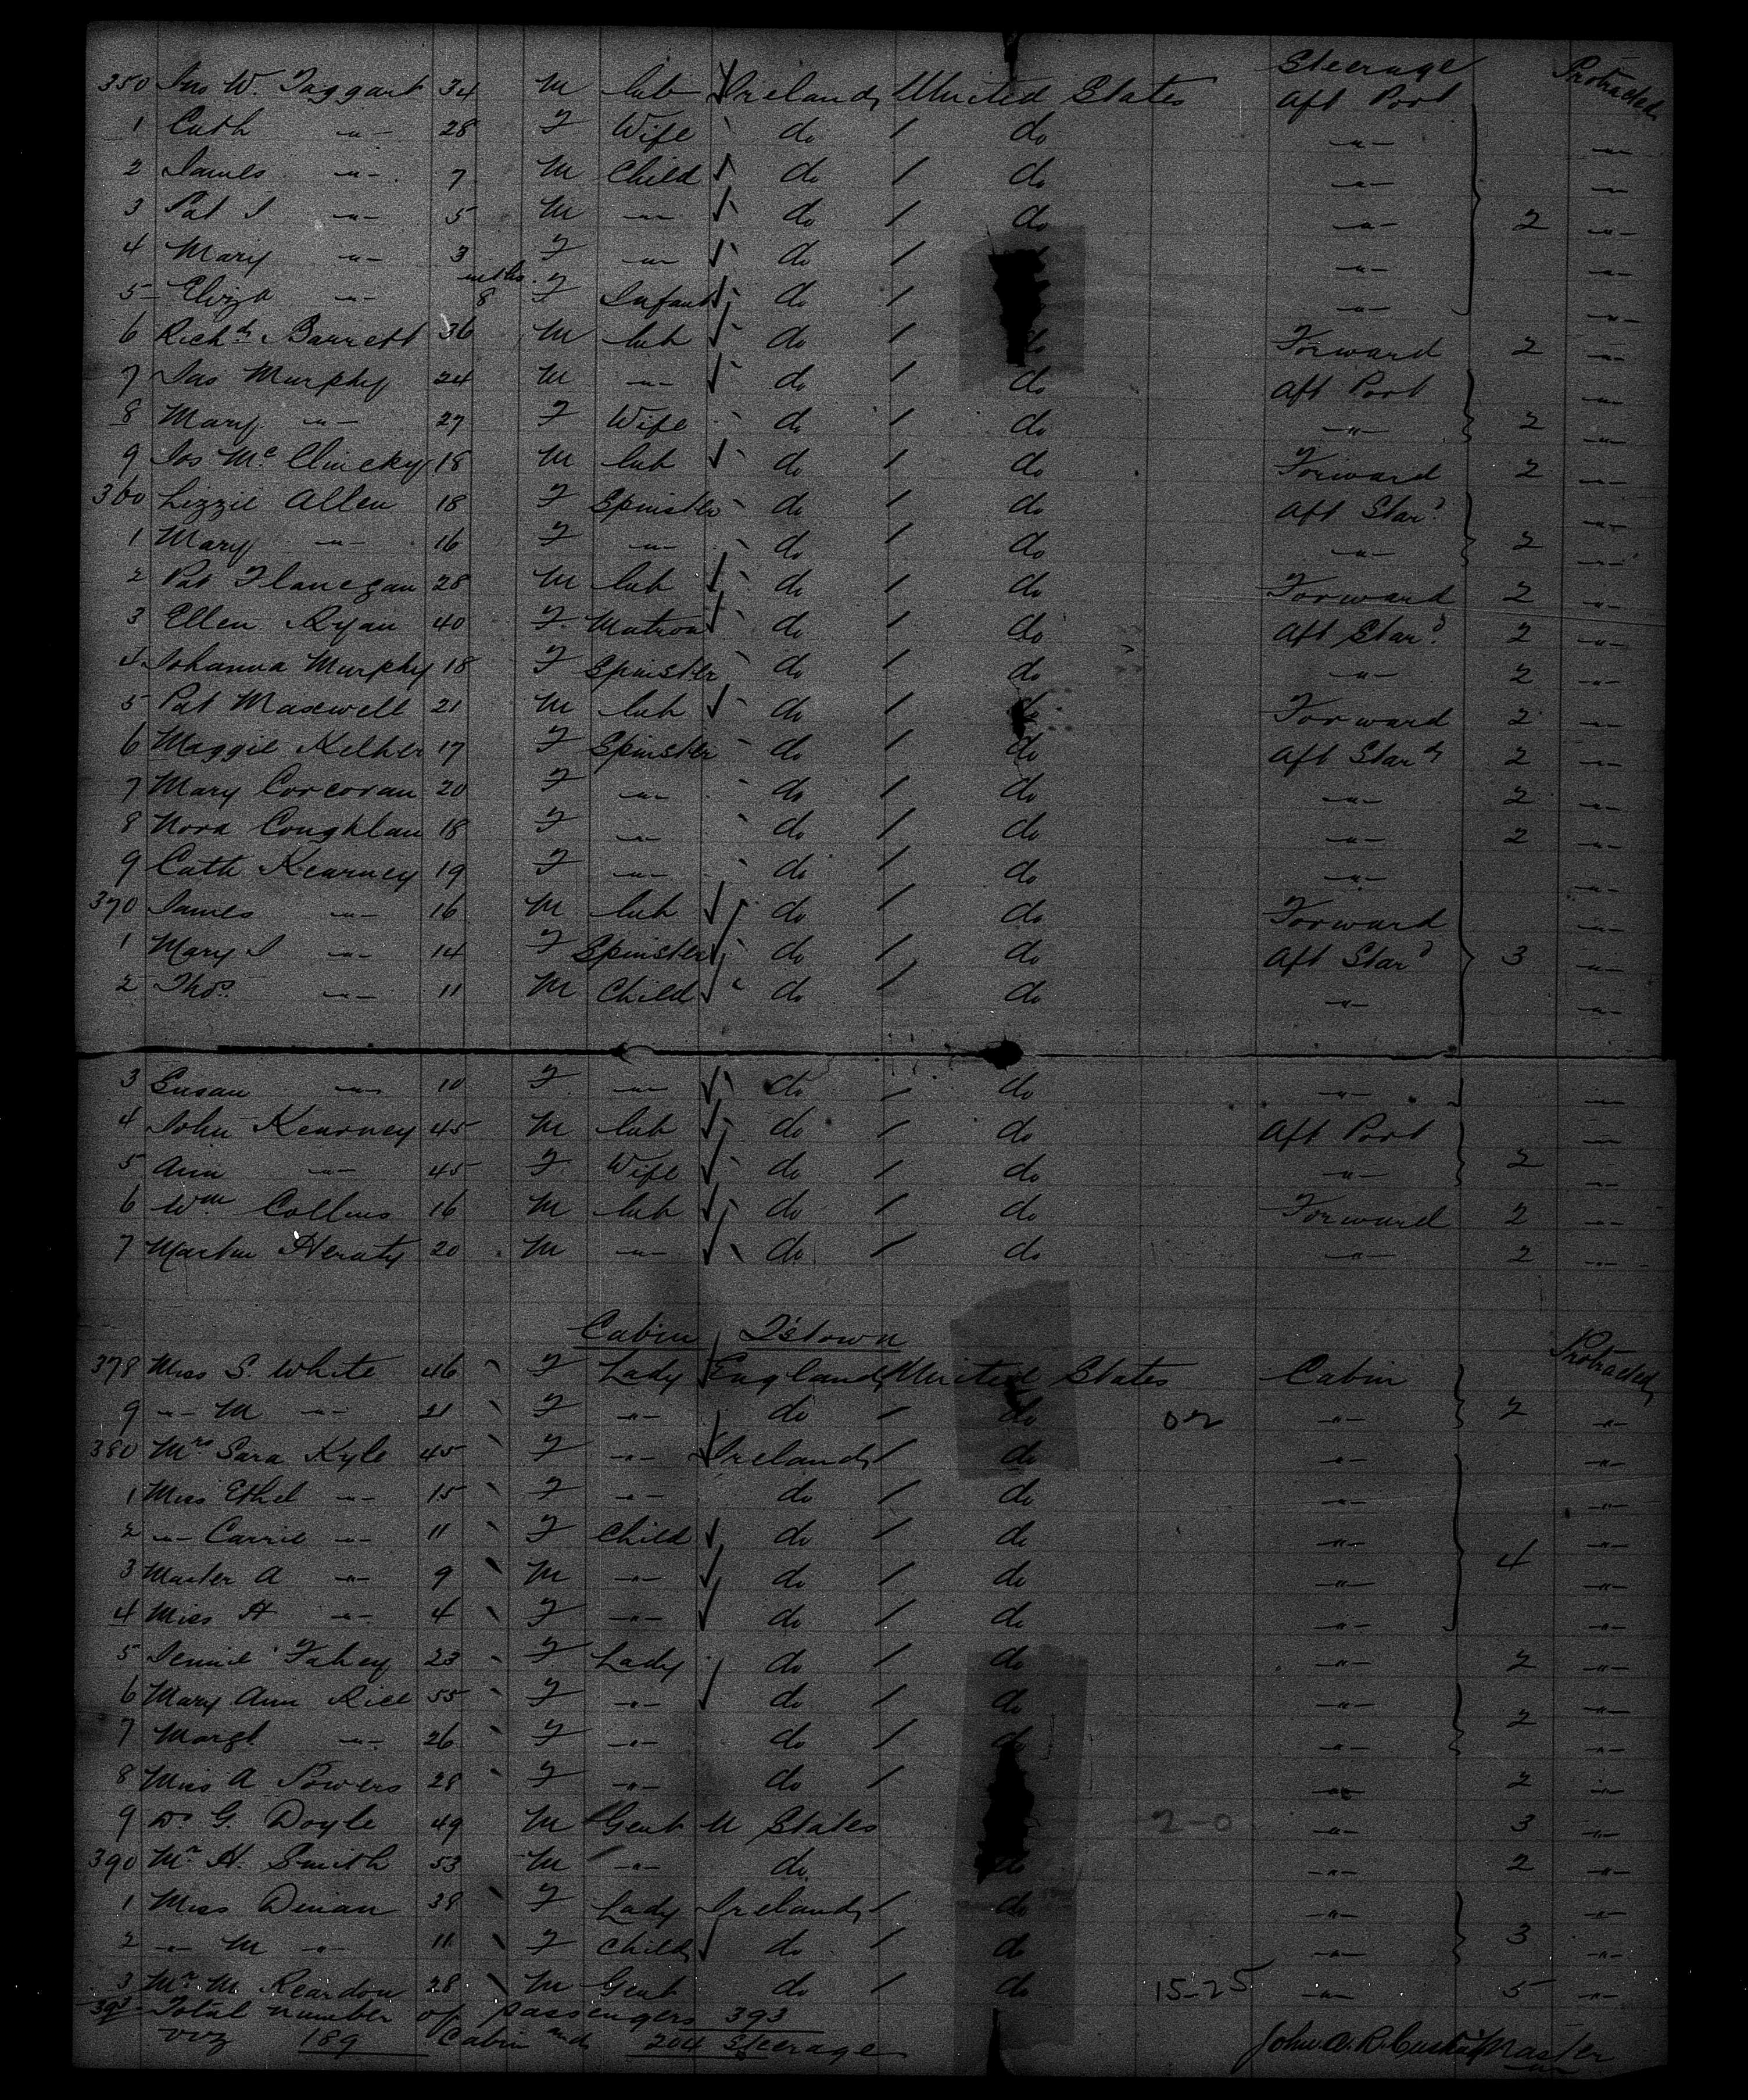 Steerage Protracted
350 Jno W. Taggart 34 M lab Ireland United States Aft Port
1 Cath -"- 28 F Wife do / do -"- -"-
2 James -"- 7 M Child do / do -"- -"-
3 Pat J -"- 5 M -"- do / do -"- 2 -"-
4 Mary -"- 3 F -"- do / -"- -"-
5 Eliza -"- mths 8 F Infant do / -"- -"-
6 Richd Barrett 36 M lab do / do Forward 2 -"-
7 Jas Murphy 24 M -"- do / do Aft Port -"-
8 Mary -"- 27 F Wife do / do -"- 2 -"-
9 Jos Mc 18 M lab do / do Forward 2 -"-
360 Lizzie Allen 18 F Spinster do / do Aft Stard -"-
1 Mary -"- 16 F -"- do / do -"- 2 -"-
2 Pat Flanegan 28 M lab do / do Forward 2 -"-
3 Ellen Ryan 40 F Matron do / do Aft Stard 2 -"-
4 Johanna Murphy 18 F Spinster do / do -"- 2 -"-
5 Pat Maxwell 21 M lab do / do Forward 2 -"-
6 Maggie Kelher 17 F Spinster do / do Aft Stard 2 -"-
7 Mary Corcoran 20 F -"- do / do -"- 2 -"-
8 Nora Coughlan 18 F -"- do / do -"- 2 -"-
9 Cath Kearney 19 F -"- do / do -"- -"-
370 James -"- 16 M lab do / do Forward
1 Mary J -"- 14 F Spinster do / do Aft Stard 3 -"-
2 Thos -"- 11 M Child do / do -"- -"-
3 Susan -"- 10 F -"- do / do -"- -"-
4 John Kearney 45 M lab do / do Aft Port -"-
5 Ann -"- 45 F Wife do / do -"- 2 -"-
6 Wm Collins 16 M lab do / do Forward 2 -"-
7 Martin Heraty 20 M -"- do / do -"- 2 -"-
Cabin Q'stown
378 Miss S. White 46 F Lady England United States Cabin Protracted
9 -"- M -"- 21 F -"- do / do -"- 2 -"-
380 Mrs Sara Kyle 45 F -"- Ireland / do -"- -"-
1 Miss Ethel -"- 15 F -"- do / do -"- -"-
2 -"- Carrie -"- 11 F Child do / do -"- -"-
3 Master A -"- 9 M -"- do / do -"- 4 -"-
4 Miss H -"- 4 F -"- do / do -"- -"-
5 Jennie Fahey 23 F Lady do / do -"- 2 -"-
6 Mary Ann Rice 55 F -"- do / do -"- -"-
7 Margt -"- 26 F -"- do / do -"- 2 -"-
8 Miss A Powers 28 F -"- do / -"- 2 -"-
9 Dr G. Doyle 49 M Gent U States 2-0 -"- 3 -"-
390 Mr H. Smith 53 M -"- do do -"- 2 -"-
1 Miss Dinan 38 F Lady Ireland / do -"- -"-
2 -"- M -"- 11 F Child do / do -"- 3 -"-
3 Mr M Reardon 28 M Gent do / do 15-25 -"- 5 -"-
393 Total number of passengers 393
viz 189 Cabin and 204 Steerage
Master